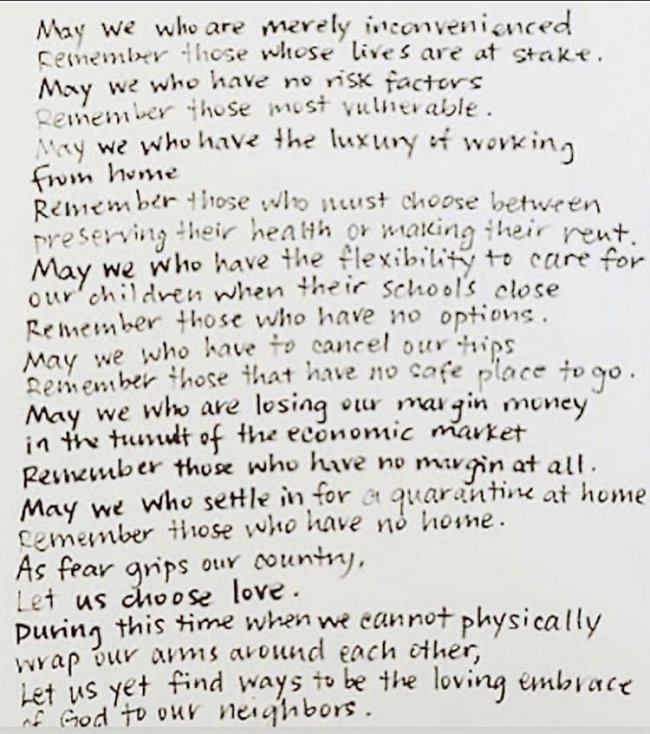 May we who are merely inconvenienced
Remember those whose lives are at stake.
May we who have no risk factors
Remember those most vulnerable.
May we who have the luxury of working
from home
Remember those who must choose between
preserving their health or making their rent.
May we who have the flexibility to care for
our children when their schools close
Remember those who have no options.
May we who have to cancel our trips
Remember those that have no safe place to go.
May we who are losing our margin money
in the tumult of the economic market
Remember those who have no margin at all.
May we who settle in for a quarantine at home
Remember those who have no home.
As fear grips our country,
Let us choose love.
During this time when we cannot physically
wrap our arms around each other,
Let us yet find ways to be the loving embrace
of God to our neighbors.